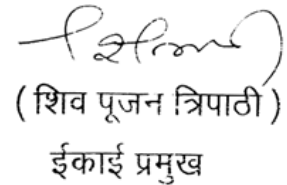 ( शिव पूजन त्रिपाठी )
ईकाई प्रमुख